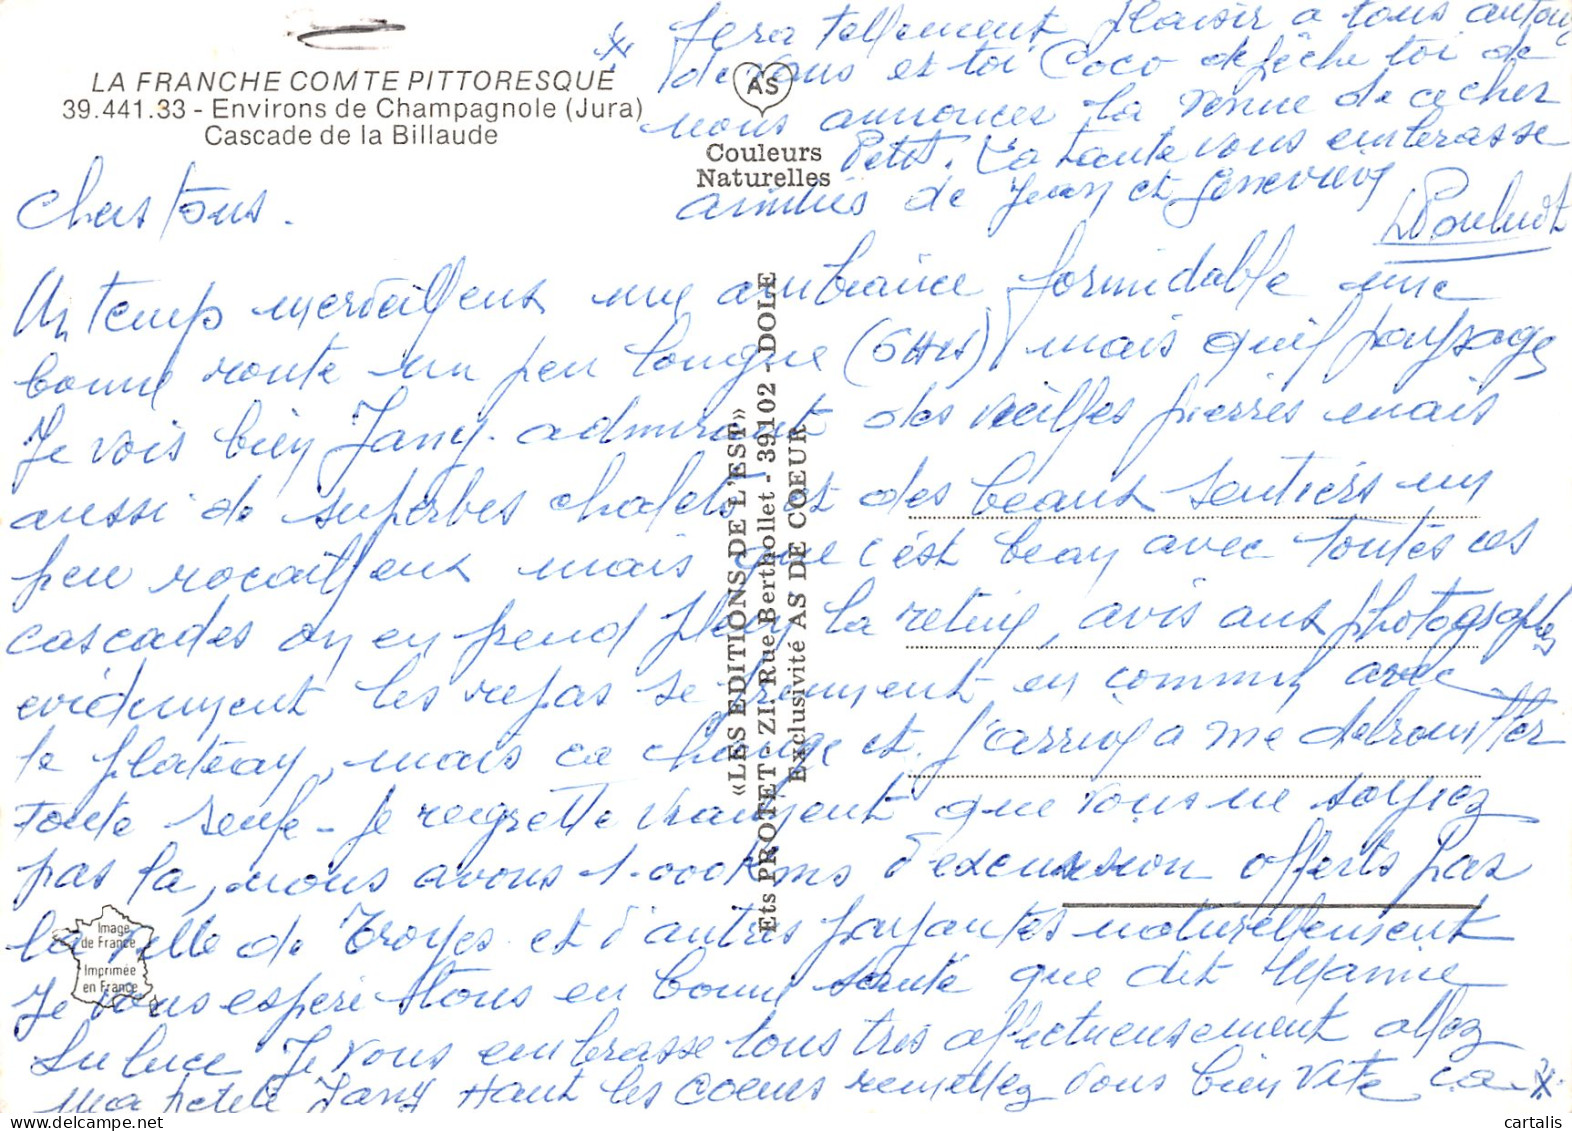 LA FRANCHE COMTE PITTORESQUE
39.441.33 - Environs de Champagnole (Jura)
Cascade de la Billaude
AS
Couleurs
Naturelles
«LES EDITIONS DE L'EST»
Ets PROTET - ZI. Rue Berthollet - 39102 - DOLE
Exclusivité AS DE COEUR
Image
de France
Imprimée
en France
Chers tous.
Un temps merveilleux une ambiance formidable une
bonne route un peu longue (6 Hrs) mais quel paysage
Je vois bien Jany admirant des vieilles pierres mais
aussi de superbes chalets et des beaux sentiers un
peu rocailleux mais que c'est beau avec toutes ces
cascades on en prend plein la retine, avis aux photographes
evidemment les repas se prennent en commun avec
le plateau, mais ca change et j'arrive a me debrouiller
toute seule - Je regrette vraiment que vous ne soyiez
pas la, nous avons 1.000 kms d'excursion offerts pas
la ville de Troyes et d'autres payantes naturellement
Je vous espere tous en bonne santé que dit Mamie
Luluce Je vous embrasse tous très affectueusement allez
ma petite Jany Haut les coeurs remettez vous bien vite ca x
x fera tellement plaisir a tous autour
de vous et toi Coco depêche toi de
nous annoncer la venue de ce cher
Petit. La tante vous embrasse
amitiés de Jean et Geneviève